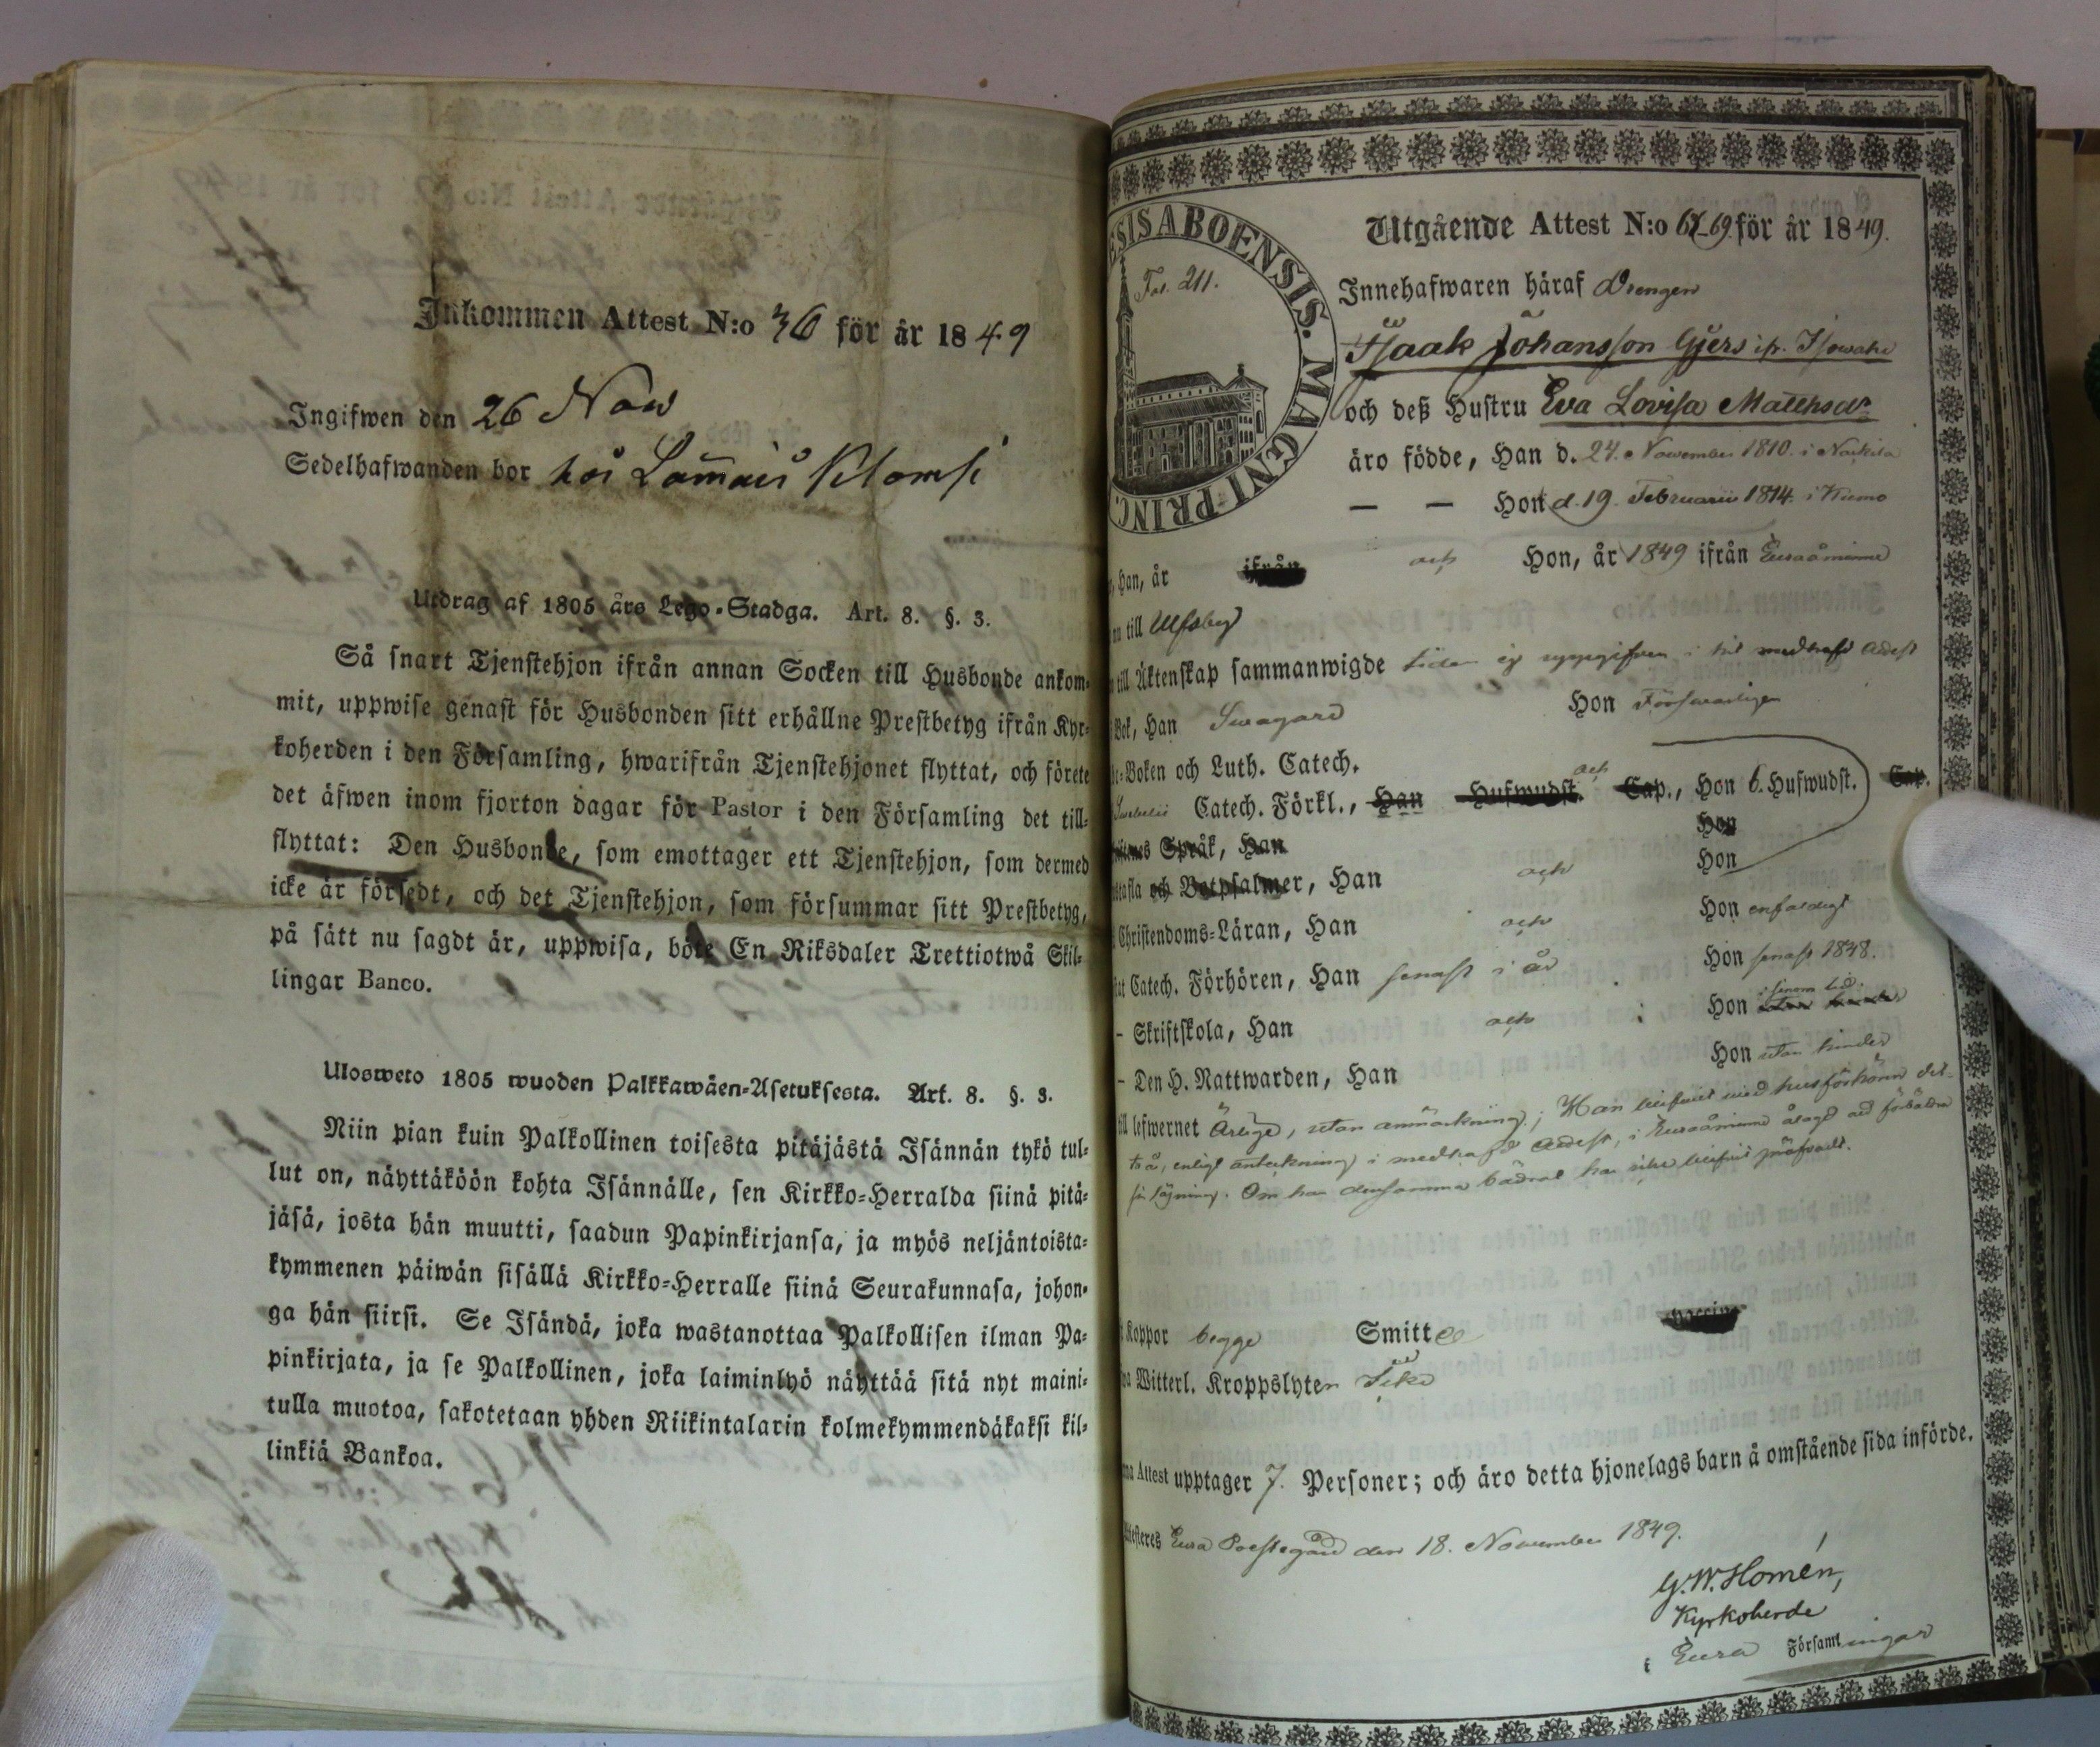 Inkommen Attest N:o 36 för år 1849
Ingifwen den 26 Nov
Sedelhafwanden bor hos
Utdrag af 1805 års Lego-Stadga. Art. 8. §. 3.
Så snart Tjenstehjon ifrån annan Socken till Husbonde ankom-
mit, uppwise genast för Husbonden sitt erhållne Prestbetyg ifrån Kyr-
koherden i den Församling, hwarifrån Tjenstehjonet flyttat, och förete
det äfwen inom fjorton dagar för Pastor i den Församling det till-
flyttat: Den Husbonde, som emottager ett Tjenstehjon, som dermed
icke är försedt, och det Tjenstehjon, som försummar sitt Prestbetyg,
på sätt nu sagdt är, uppwisa, böte En Riksdaler Trettiotwå Skil-
lingar Banco.
Ulosweto 1805 wuoden Palkkawäen-Asetuksesta. Art. 8. §. 3.
Niin pian kuin Palkollinen toisesta pitäjästä Isännän tykö tul-
lut on, näyttäköön kohta Isännälle, sen Kirkko-Herralda siinä pitä-
jäsä, josta hän muutti, saadun Papinkirjansa, ja myös neljäntoista-
kymmenen päiwän sisällä Kirkko-Herralle siinä Seurakunnasa, johon-
ga hän siirsi. Se Isändä, joka wastanottaa Palkollisen ilman Pa-
pinkirjata, ja se Palkollinen, joka laiminlyö näyttää sitä nyt maini-
tulla muotoa, sakotetaan yhden Riikintalarin kolmekymmendäkaksi kil-
linkiä Bankoa.
ESIS ABOENSIS. MAGNI PRINC.
Fol. 211.
Utgående Attest N:o 69 för år 1849.
Innehafwaren häraf Drengen
Isaak Johansson Gjers ifr.
och deß Hustru Eva Lovisa Mattsdr
äro födde, Han d. 24. November 1810. i Nakkila
— — Hon d. 19. Februarii 1814. i Kumo
, Han, år ifrån och Hon, år 1849 ifrån Euraåminne
till Ulfsby
till Äktenskap sammanwigde tiden ej uppgifven i hit medhafd Attest
Bok, Han Swagare Hon Försvarligen
-Boken och Luth. Catech.
Catech. Förkl., Han Hufwudst. och Cap., Hon 6. Hufwudst. Cap.
Språk, Han Hon
och Botpsalmer, Han och Hon
Christendoms-Läran, Han och Hon enfaldigt
Catech. Förhören, Han senast i år Hon senast 1848.
- Skriftskola, Han och Hon i sinom tid.
- Den H. Nattwarden, Han Hon utan hinder
lefwernet Ärligt, utan anmärkning; Han
enligt anteckning i medhafd Attest, i Euraåminne
Om han densamma
Koppor begge Smitte vaccin
Witterl. Kroppslyten Icke
Attest upptager 7. Personer; och äro detta hjonelags barn å omstående sida införde.
Eura Prestegård den 18. November 1849.
G. W. Homén,
Kyrkoherde
i Eura Församlingar